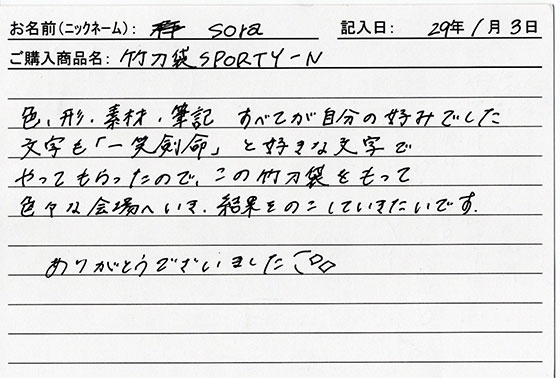 お名前(ニックネーム): sora 記入日: 29年 1月 3日
ご購入商品名: 竹刀袋SPORTY-N
色、形、素材、筆記 すべてが自分の好みでした
文字も「一笑剣命」と好きな文字で
やってもらったので、この竹刀袋をもって
色々な会場へいき、結果をのこしていきたいです.
ありがとうございました